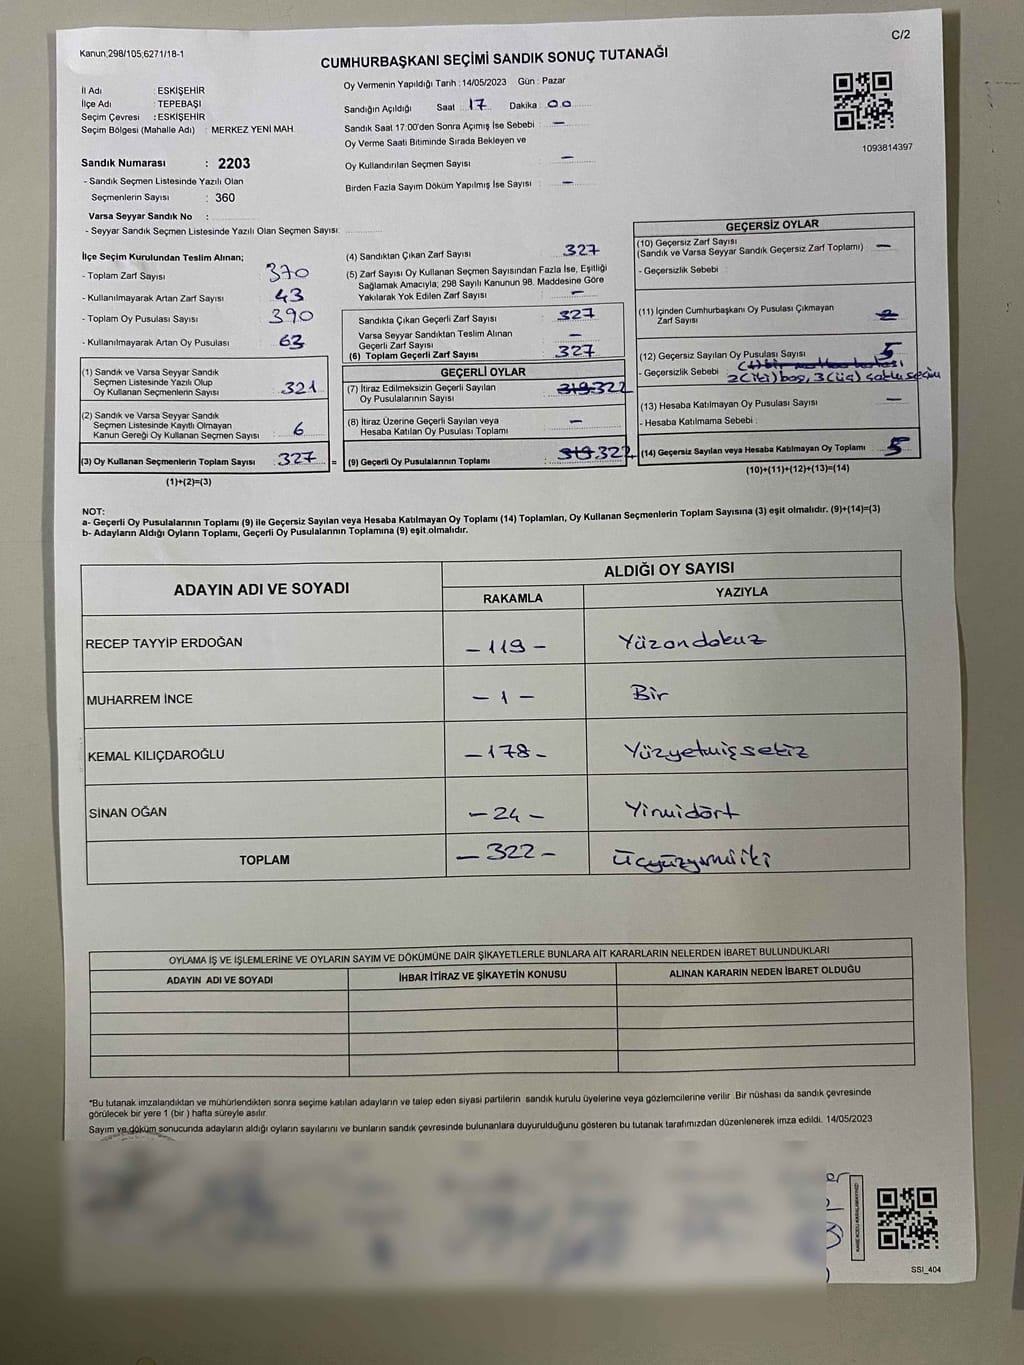 Kanun,298/105;6271/18-1
C/2
CUMHURBAŞKANI SEÇİMİ SANDIK SONUÇ TUTANAĞI
İl Adı : ESKİŞEHİR
İlçe Adı : TEPEBAŞI
Seçim Çevresi : ESKİŞEHİR
Seçim Bölgesi (Mahalle Adı) : MERKEZ YENİ MAH.
Sandık Numarası : 2203
- Sandık Seçmen Listesinde Yazılı Olan
Seçmenlerin Sayısı : 360
Varsa Seyyar Sandık No :
- Seyyar Sandık Seçmen Listesinde Yazılı Olan Seçmen Sayısı:
Oy Vermenin Yapıldığı Tarih : 14/05/2023 Gün : Pazar
Sandığın Açıldığı Saat 17 Dakika : 00
Sandık Saat 17:00'den Sonra Açımış İse Sebebi : —
Oy Verme Saati Bitiminde Sırada Bekleyen ve
Oy Kullandırılan Seçmen Sayısı —
Birden Fazla Sayım Döküm Yapılmış İse Sayısı : —
1093814397
İlçe Seçim Kurulundan Teslim Alınan;
- Toplam Zarf Sayısı 370
- Kullanılmayarak Artan Zarf Sayısı 43
- Toplam Oy Pusulası Sayısı 390
- Kullanılmayarak Artan Oy Pusulası 63
(1) Sandık ve Varsa Seyyar Sandık
Seçmen Listesinde Yazılı Olup
Oy Kullanan Seçmenlerin Sayısı : 321
(2) Sandık ve Varsa Seyyar Sandık
Seçmen Listesinde Kayıtlı Olmayan
Kanun Gereği Oy Kullanan Seçmen Sayısı : 6
(3) Oy Kullanan Seçmenlerin Toplam Sayısı : 327 =
(1)+(2)=(3)
(4) Sandıktan Çıkan Zarf Sayısı 327
(5) Zarf Sayısı Oy Kullanan Seçmen Sayısından Fazla İse, Eşitliği
Sağlamak Amacıyla; 298 Sayılı Kanunun 98. Maddesine Göre
Yakılarak Yok Edilen Zarf Sayısı —
Sandıkta Çıkan Geçerli Zarf Sayısı : 327
Varsa Seyyar Sandıktan Teslim Alınan
Geçerli Zarf Sayısı : —
(6) Toplam Geçerli Zarf Sayısı : 327
GEÇERLİ OYLAR
(7) İtiraz Edilmeksizin Geçerli Sayılan
Oy Pusulalarının Sayısı : 319 322
(8) İtiraz Üzerine Geçerli Sayılan veya
Hesaba Katılan Oy Pusulası Toplamı : —
(9) Geçerli Oy Pusulalarının Toplamı : 319 322
GEÇERSİZ OYLAR
(10) Geçersiz Zarf Sayısı
(Sandık ve Varsa Seyyar Sandık Geçersiz Zarf Toplamı) —
- Geçersizlik Sebebi :
(11) İçinden Cumhurbaşkanı Oy Pusulası Çıkmayan
Zarf Sayısı
(12) Geçersiz Sayılan Oy Pusulası Sayısı : 5
- Geçersizlik Sebebi : 2(iki) boş, 3(üç) çoklu seçim
(13) Hesaba Katılmayan Oy Pusulası Sayısı —
- Hesaba Katılmama Sebebi :
(14) Geçersiz Sayılan veya Hesaba Katılmayan Oy Toplamı : 5
(10)+(11)+(12)+(13)=(14)
NOT:
a- Geçerli Oy Pusulalarının Toplamı (9) ile Geçersiz Sayılan veya Hesaba Katılmayan Oy Toplamı (14) Toplamları, Oy Kullanan Seçmenlerin Toplam Sayısına (3) eşit olmalıdır. (9)+(14)=(3)
b- Adayların Aldığı Oyların Toplamı, Geçerli Oy Pusulalarının Toplamına (9) eşit olmalıdır.
ADAYIN ADI VE SOYADI
ALDIĞI OY SAYISI
RAKAMLA YAZIYLA
RECEP TAYYİP ERDOĞAN – 119 – Yüzondokuz
MUHARREM İNCE – 1 – Bir
KEMAL KILIÇDAROĞLU – 178 – Yüzyetmişsekiz
SİNAN OĞAN – 24 – Yirmidört
TOPLAM – 322 – Üçyüzyirmiiki
OYLAMA İŞ VE İŞLEMLERİNE VE OYLARIN SAYIM VE DÖKÜMÜNE DAİR ŞİKAYETLERLE BUNLARA AİT KARARLARIN NELERDEN İBARET BULUNDUKLARI
ADAYIN ADI VE SOYADI İHBAR İTİRAZ VE ŞİKAYETİN KONUSU ALINAN KARARIN NEDEN İBARET OLDUĞU
*Bu tutanak imzalandıktan ve mühürlendikten sonra seçime katılan adayların ve talep eden siyasi partilerin sandık kurulu üyelerine veya gözlemcilerine verilir .Bir nüshası da sandık çevresinde
görülecek bir yere 1 (bir ) hafta süreyle asılır.
Sayım ve döküm sonucunda adayların aldığı oyların sayılarını ve bunların sandık çevresinde bulunanlara duyurulduğunu gösteren bu tutanak tarafımızdan düzenlenerek imza edildi. 14/05/2023
SSI_404